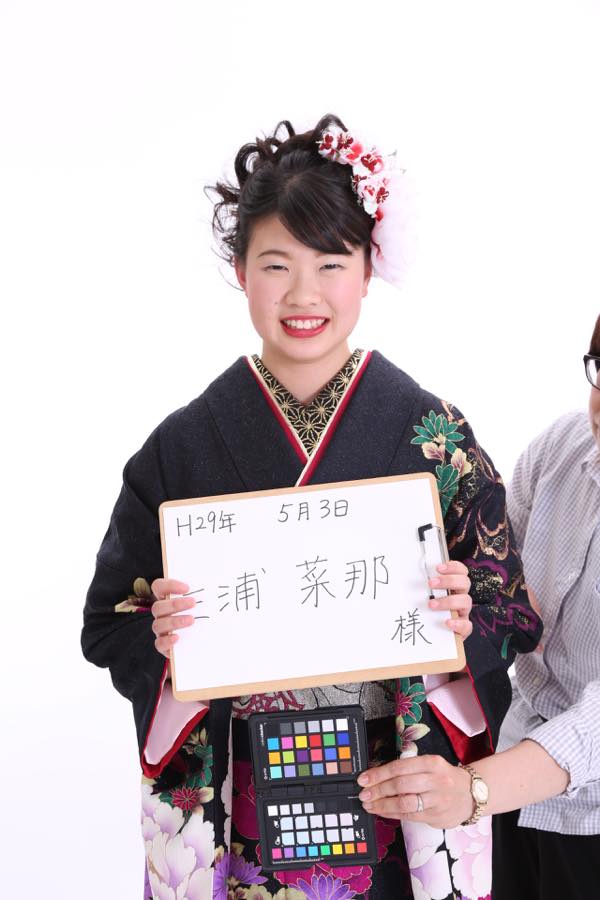 H29年 5月3日
三浦 菜那
様